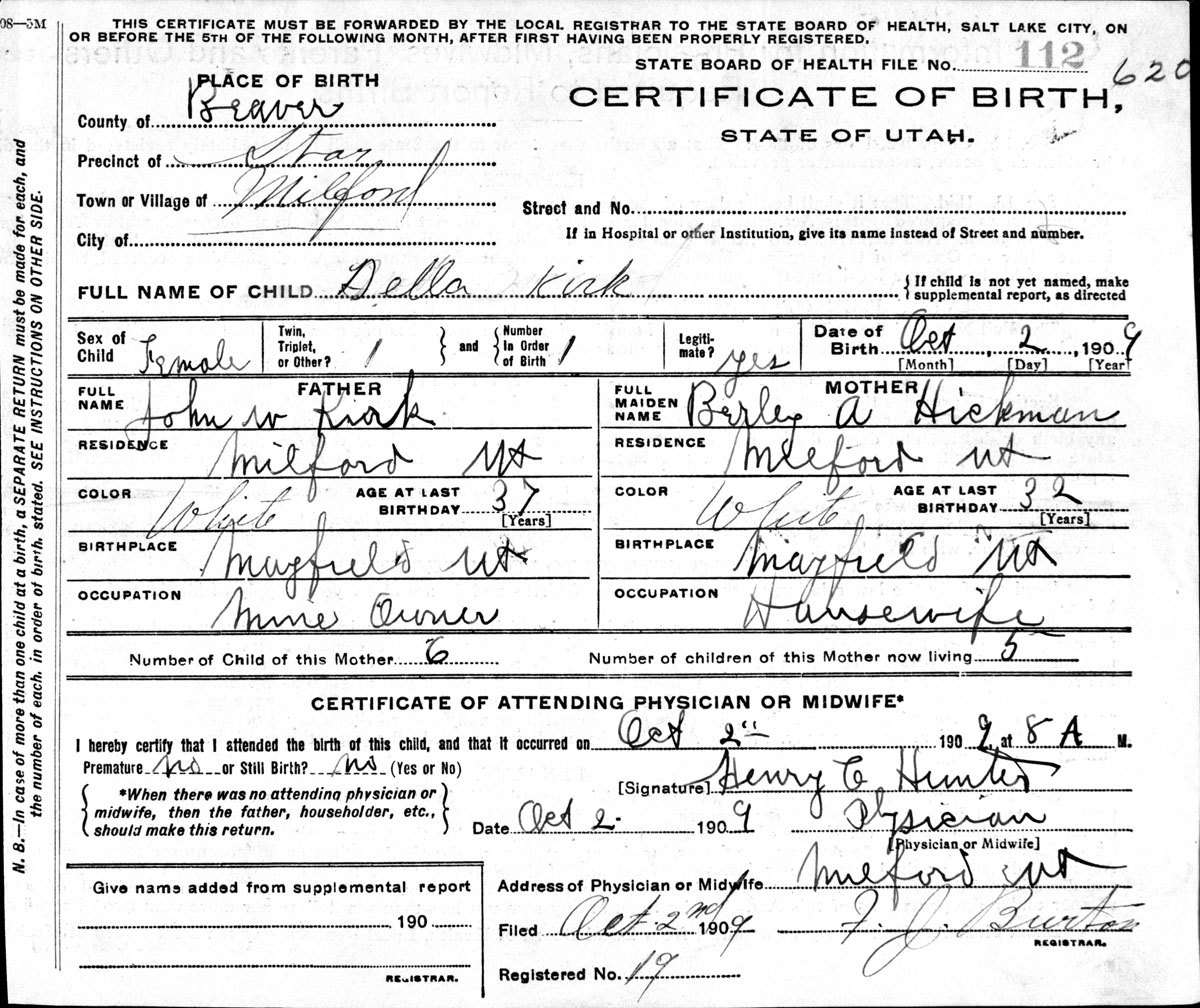 08—5M
THIS CERTIFICATE MUST BE FORWARDED BY THE LOCAL REGISTRAR TO THE STATE BOARD OF HEALTH, SALT LAKE CITY, ON
OR BEFORE THE 5TH OF THE FOLLOWING MONTH, AFTER FIRST HAVING BEEN PROPERLY REGISTERED.
STATE BOARD OF HEALTH FILE No. 112 620
PLACE OF BIRTH
CERTIFICATE OF BIRTH,
STATE OF UTAH.
County of Beaver
Precinct of Star
Town or Village of Milford
Street and No.
City of
If in Hospital or other Institution, give its name instead of Street and number.
FULL NAME OF CHILD Della Kirk { If child is not yet named, make
supplemental report, as directed
Sex of Child Female
Twin, Triplet, or Other? 1 } and { Number In Order of Birth 1
Legiti-mate? yes
Date of Birth Oct, 2, 1909
[Month] [Day] [Year]
FATHER
FULL NAME John W Kirk
RESIDENCE Milford Ut
COLOR White AGE AT LAST BIRTHDAY 37
[Years]
BIRTHPLACE Mayfield Ut
OCCUPATION Mine Owner
MOTHER
FULL MAIDEN NAME Berley A Hickman
RESIDENCE Milford Ut
COLOR White AGE AT LAST BIRTHDAY 32
[Years]
BIRTHPLACE Mayfield Ut
OCCUPATION Housewife
Number of Child of this Mother 6 Number of children of this Mother now living 5
CERTIFICATE OF ATTENDING PHYSICIAN OR MIDWIFE*
I hereby certify that I attended the birth of this child, and that it occurred on Oct 2" 1909, at 8 A M.
Premature no or Still Birth? no (Yes or No)
[Signature] Henry C Hunter
{ *When there was no attending physician or
midwife, then the father, householder, etc.,
should make this return. }
Date Oct 2. 1909 Physician
[Physician or Midwife]
Address of Physician or Midwife Milford Ut
Filed Oct 2nd 1909 F. J. Burton
REGISTRAR.
Registered No. 19
Give name added from supplemental report
190
REGISTRAR.
N. B.—In case of more than one child at a birth, a SEPARATE RETURN must be made for each, and
the number of each, in order of birth, stated. SEE INSTRUCTIONS ON OTHER SIDE.